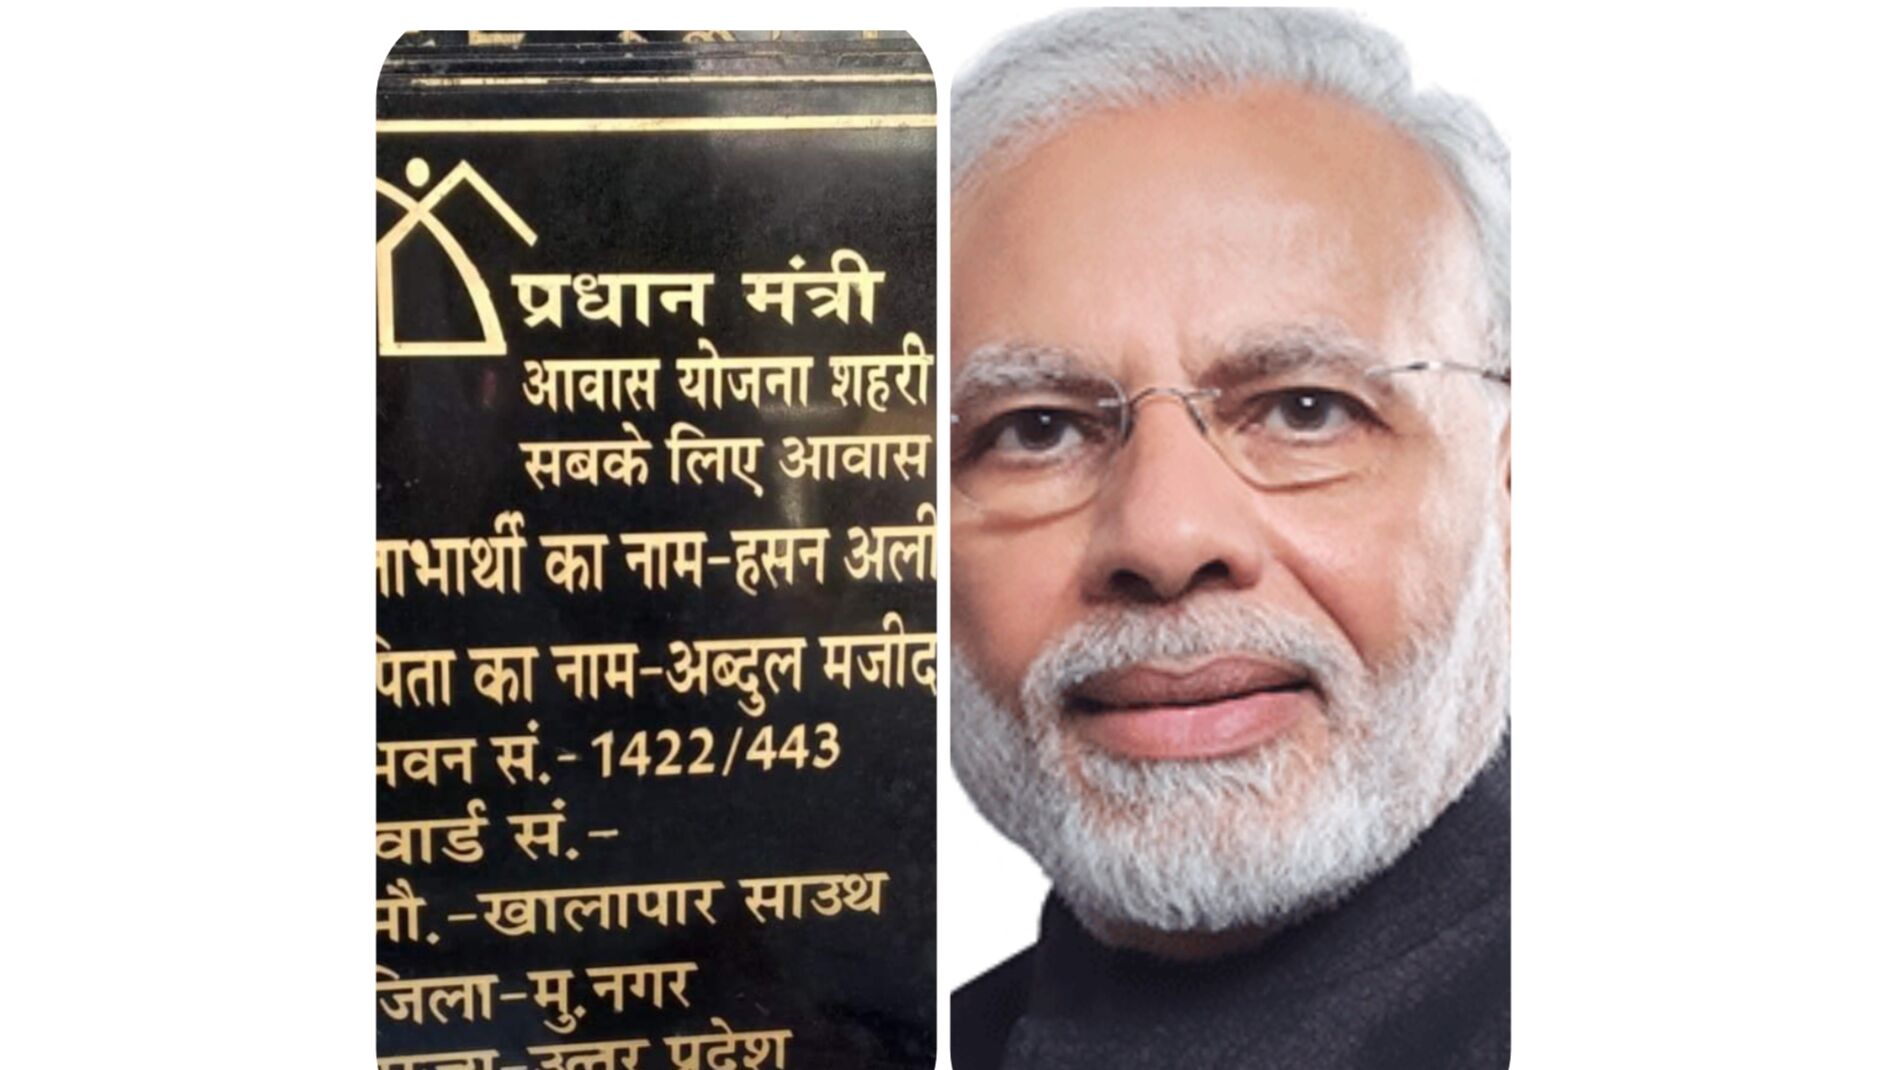 प्रधान मंत्री
आवास योजना शहरी
सबके लिए आवास
लाभार्थी का नाम-हसन अली
पिता का नाम-अब्दुल मजीद
भवन सं.-1422/443
वार्ड सं.-
मौ.-खालापार साउथ
जिला-मु.नगर
राज्य-उत्तर प्रदेश